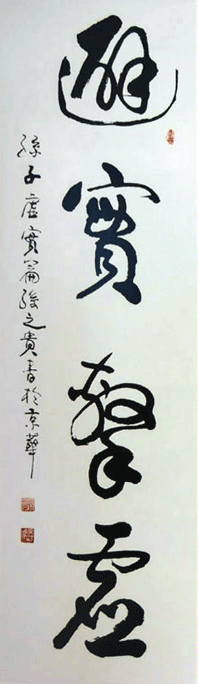 避實擊虛
孫子虛實篇張之貴書於京華